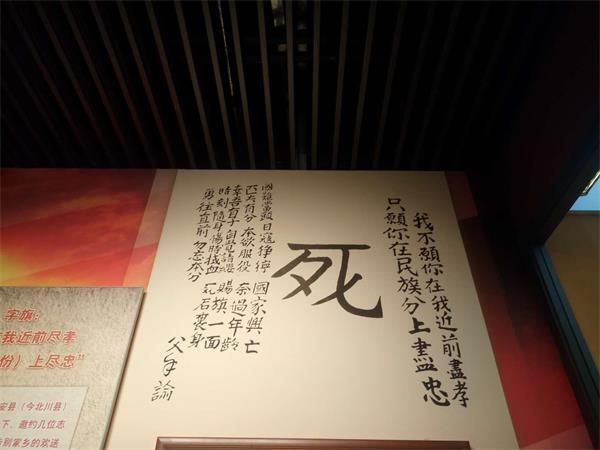 我不願你在我近前盡孝
只願你在民族分上盡忠
死
國難當頭 日寇猙獰 國家興亡
匹夫有分 本欲服役 奈過年齡
幸吾有子 自覺請纓 賜旗一面
時刻隨身 傷時拭血 死后裹身
勇往直前 勿忘本分
父手諭
字旗：
我近前尽孝
份）上尽忠”
安县（今北川县）
下、邀约几位志
别家乡的欢送